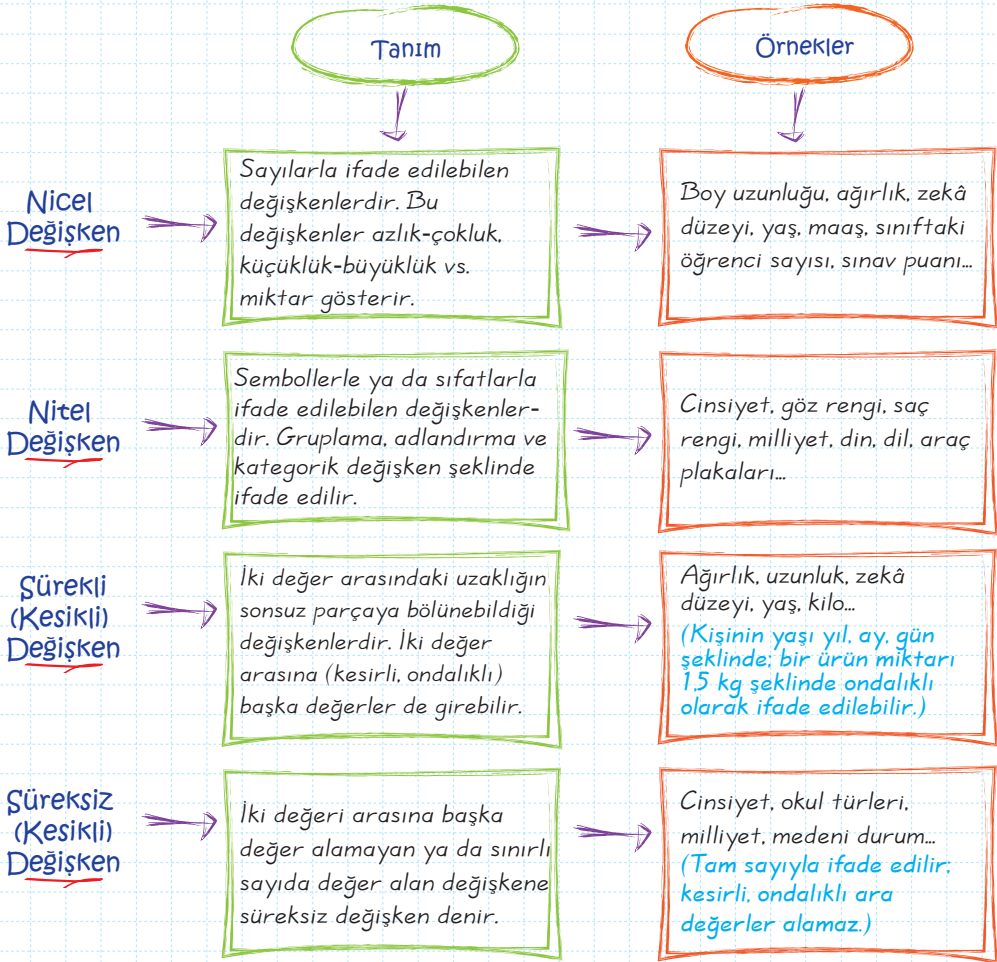 Tanım
Örnekler
Nicel
Değişken
Sayılarla ifade edilebilen
değişkenlerdir. Bu
değişkenler azlık-çokluk,
küçüklük-büyüklük vs.
miktar gösterir.
Boy uzunluğu, ağırlık, zekâ
düzeyi, yaş, maaş, sınıftaki
öğrenci sayısı, sınav puanı...
Nitel
Değişken
Sembollerle ya da sıfatlarla
ifade edilebilen değişkenler-
dir. Gruplama, adlandırma ve
kategorik değişken şeklinde
ifade edilir.
Cinsiyet, göz rengi, saç
rengi, milliyet, din, dil, araç
plakaları...
Sürekli
(Kesikli)
Değişken
İki değer arasındaki uzaklığın
sonsuz parçaya bölünebildiği
değişkenlerdir. İki değer
arasına (kesirli, ondalıklı)
başka değerler de girebilir.
Ağırlık, uzunluk, zekâ
düzeyi, yaş, kilo...
(Kişinin yaşı yıl, ay, gün
şeklinde; bir ürün miktarı
1,5 kg şeklinde ondalıklı
olarak ifade edilebilir.)
Süreksiz
(Kesikli)
Değişken
İki değeri arasına başka
değer alamayan ya da sınırlı
sayıda değer alan değişkene
süreksiz değişken denir.
Cinsiyet, okul türleri,
milliyet, medeni durum...
(Tam sayıyla ifade edilir;
kesirli, ondalıklı ara
değerler alamaz.)